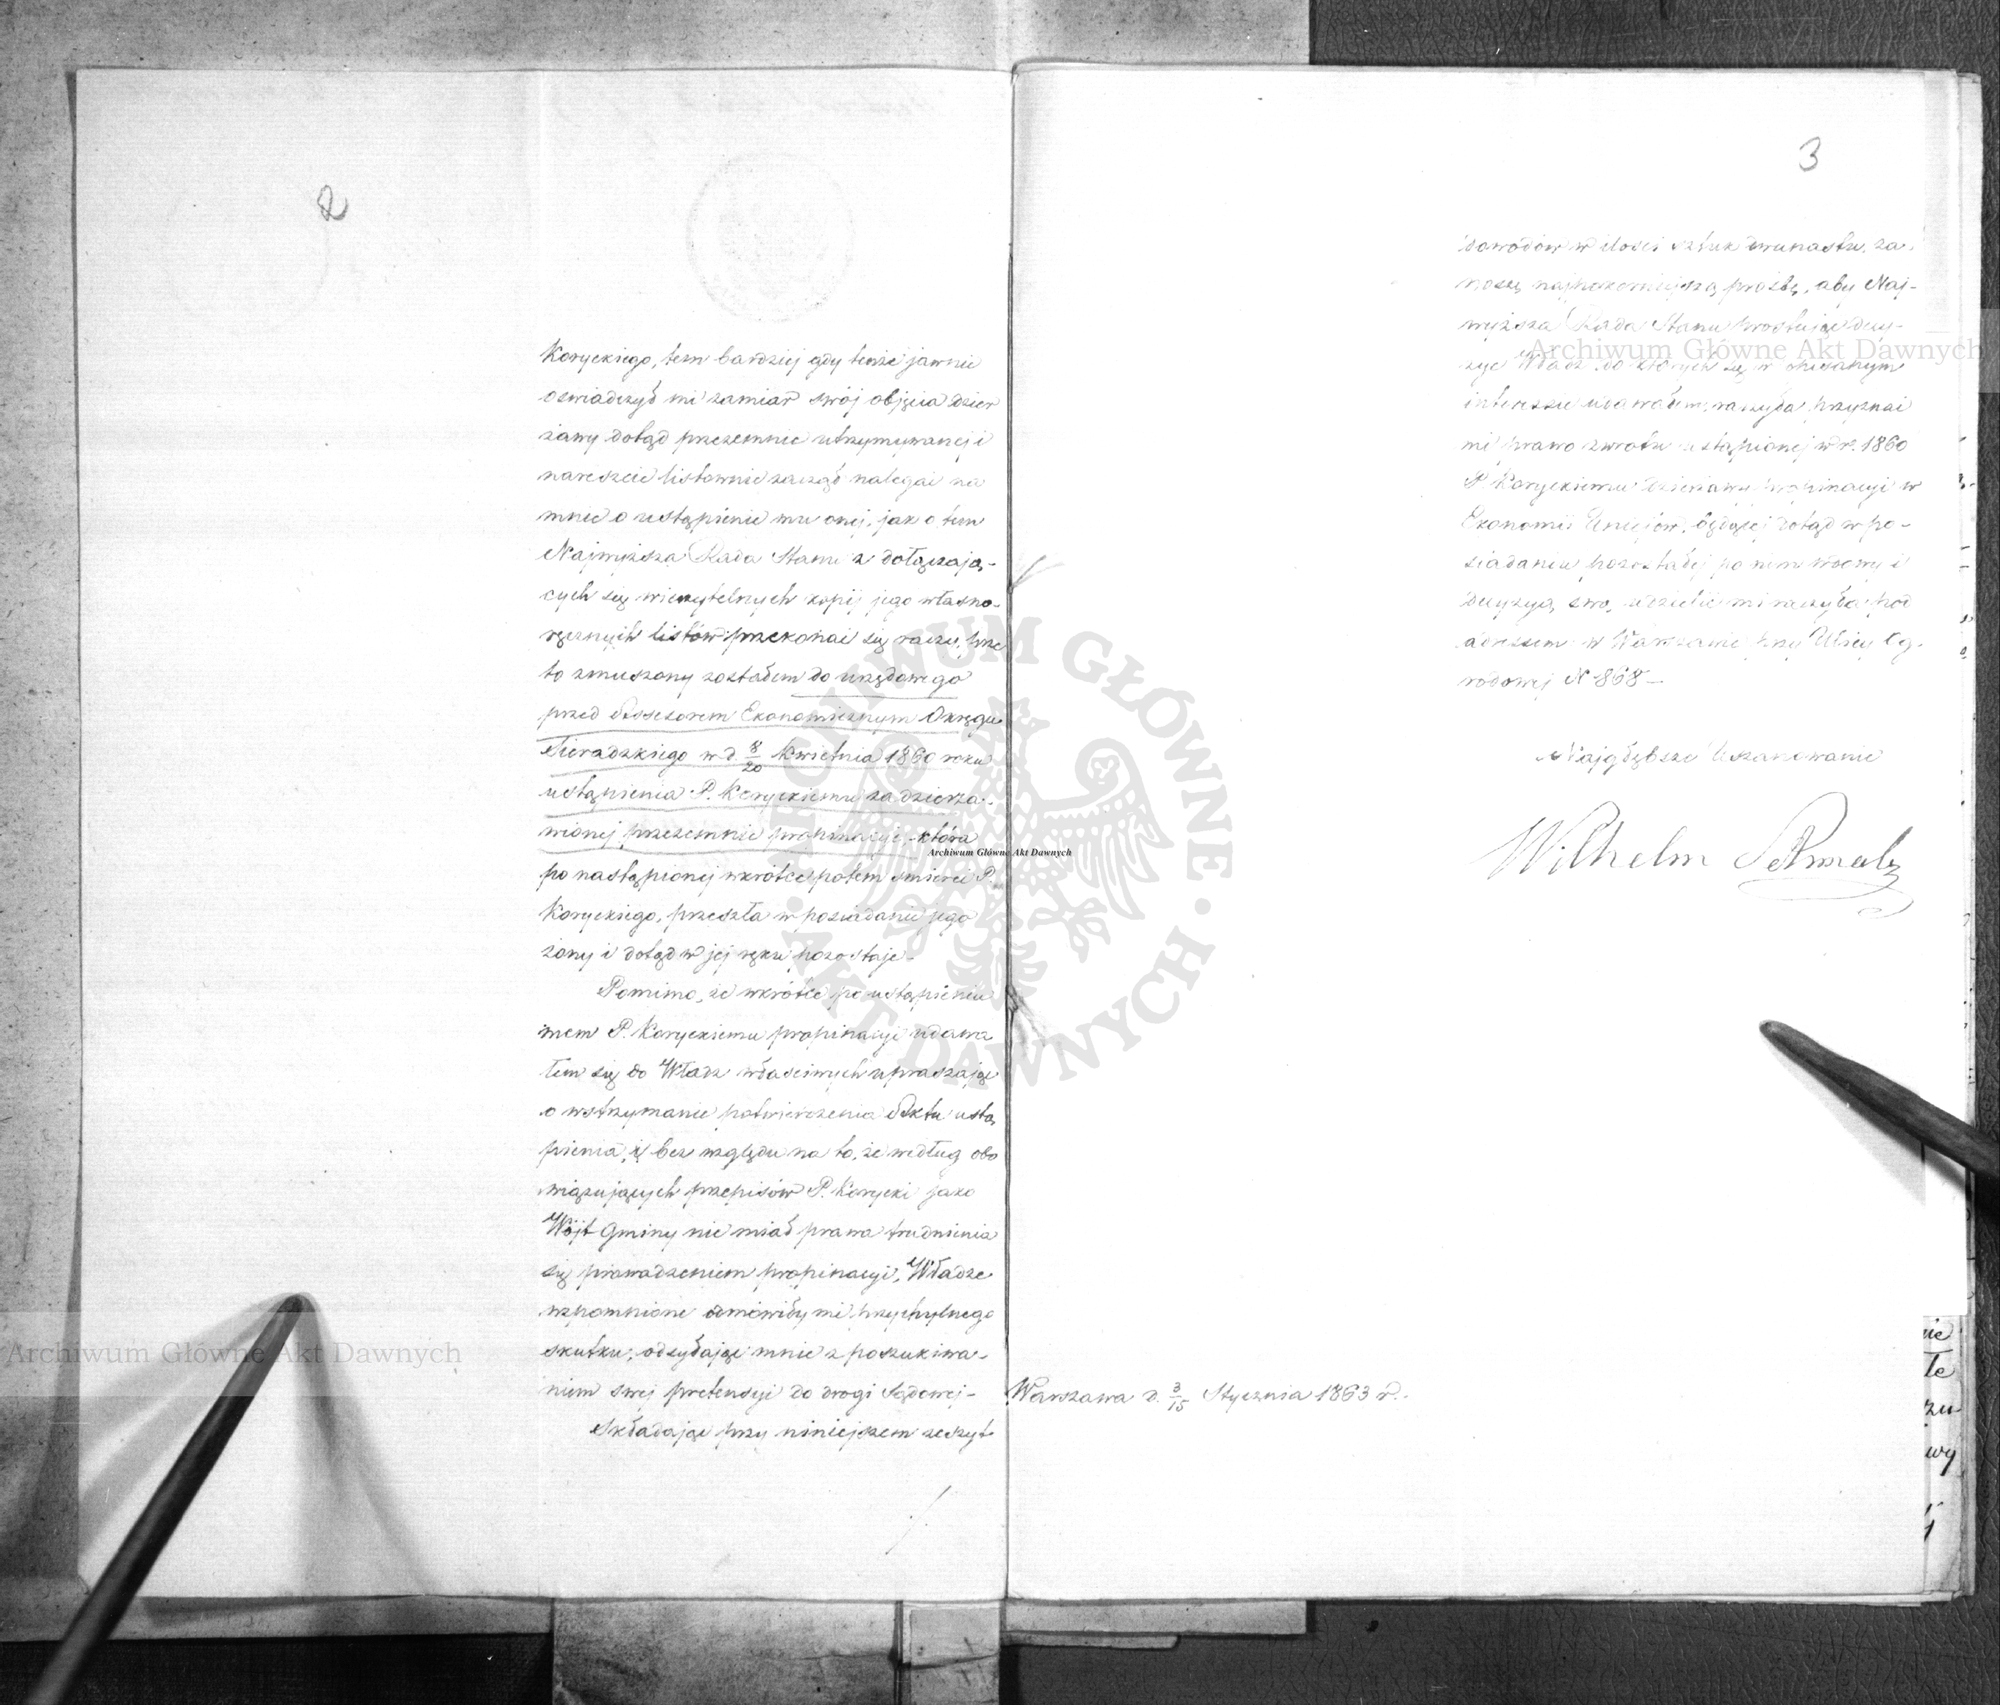 2
Koryckiego, tem bardziej gdy tenże jawnie
oświadczył mi zamiar swój objęcia dzier
żawy dotąd przezemnie utrzymywanej i
nareszcie listownie zaczął nalegać na
mnie o ustąpienie mu onej, jak o tem
Najwyższa Rada Stanu z dołączają-
cych się wierzytelnych kopij jego własno-
ręcznych listów przekonać się raczy, prze
to zmuszony zostałem do urzędowego
przed Assesorem Ekonomicznym Okręgu
Sieradzkiego w d. 8/20 Kwietnia 1860 roku
ustąpienia P. Koryckiemu zadzierża-
wionej przezemnie propinacyi, która
po nastąpionej wkrótce potem śmierci P.
Koryckiego, przeszła w posiadanie jego
żony i dotąd w jej ręku pozostaje.
Pomimo, że wkrótce po ustąpieniu
mem P. Koryckiemu propinacyi udawa
łem się do Władz właściwych upraszając
o wstrzymanie potwierdzenia Aktu ustą
pienia, i bez względu na to, że według obo
wiązujących przepisów P. Korycki jako
Wójt Gminy nie miał prawa trudnienia
się prowadzeniem propinacyi, Władze
wspomnione odmówiły mi przychylnego
skutku, odsyłając mnie z poszukiwa-
niem swej pretensyi do drogi Sądowej-
Składając przy niniejszem zeszyt
3
dowodów w ilości sztuk dwunastu, za-
noszę najpokorniejszą prośbę, aby Naj-
wyższa Rada Stanu prostując decy-
zye Władz do których się w opisanym
interessie udawałem, raczyła przyznać
mi prawo zwrotu ustąpionej w r. 1860
P. Koryckiemu dzierżawy propinacyi w
Ekonomii Uniejów, będącej dotąd w po-
siadaniu pozostałej po nim wdowy i
decyzyą swą udzielić mi raczyła pod
adressem w Warszawie przy Ulicy Og-
rodowej N 868-
Najgłębsze Uszanowanie
Wilhelm Schmalz
Warszawa d. 3/15 Stycznia 1863 r.
Archiwum Główne Akt Dawnych
Archiwum Główne Akt Dawnych
Archiwum Główne Akt Dawnych
ARCHIWUM GŁÓWNE
AKT DAWNYCH